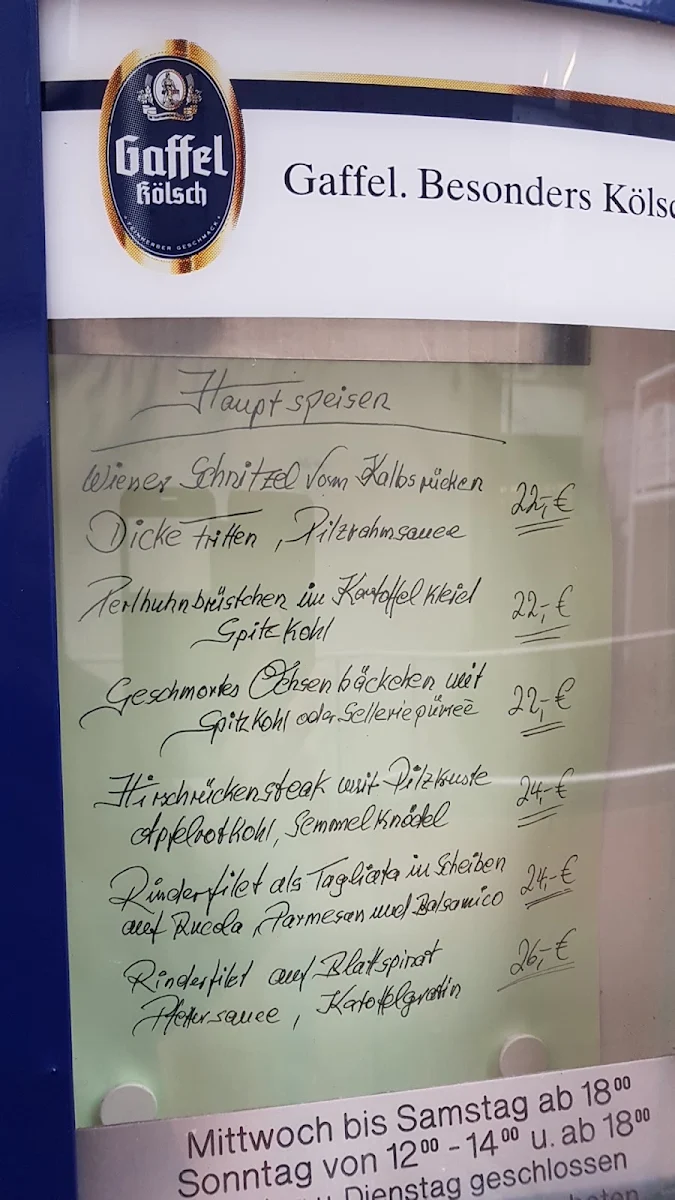 Gaffel
Kölsch
FEINHERBER GESCHMACK
Gaffel. Besonders Kölsc
Hauptspeisen
Wiener Schnitzel vom Kalbsrücken
Dicke Fritten, Pilzrahmsauce 22,-€
Perlhuhnbrüstchen im Kartoffelkleid 22,-€
Spitzkohl
Geschmortes Ochsenbäckchen mit 22,-€
Spitzkohl oder Selleriepüree
Hirschrückensteak mit Pilzkruste 24,-€
Apfelrotkohl, Semmelknödel
Rinderfilet als Tagliata in Scheiben 24,-€
auf Rucola, Parmesan und Balsamico
Rinderfilet auf Blattspinat 26,-€
Pfeffersauce, Kartoffelgratin
Mittwoch bis Samstag ab 18⁰⁰
Sonntag von 12⁰⁰ - 14⁰⁰ u. ab 18⁰⁰
Dienstag geschlossen